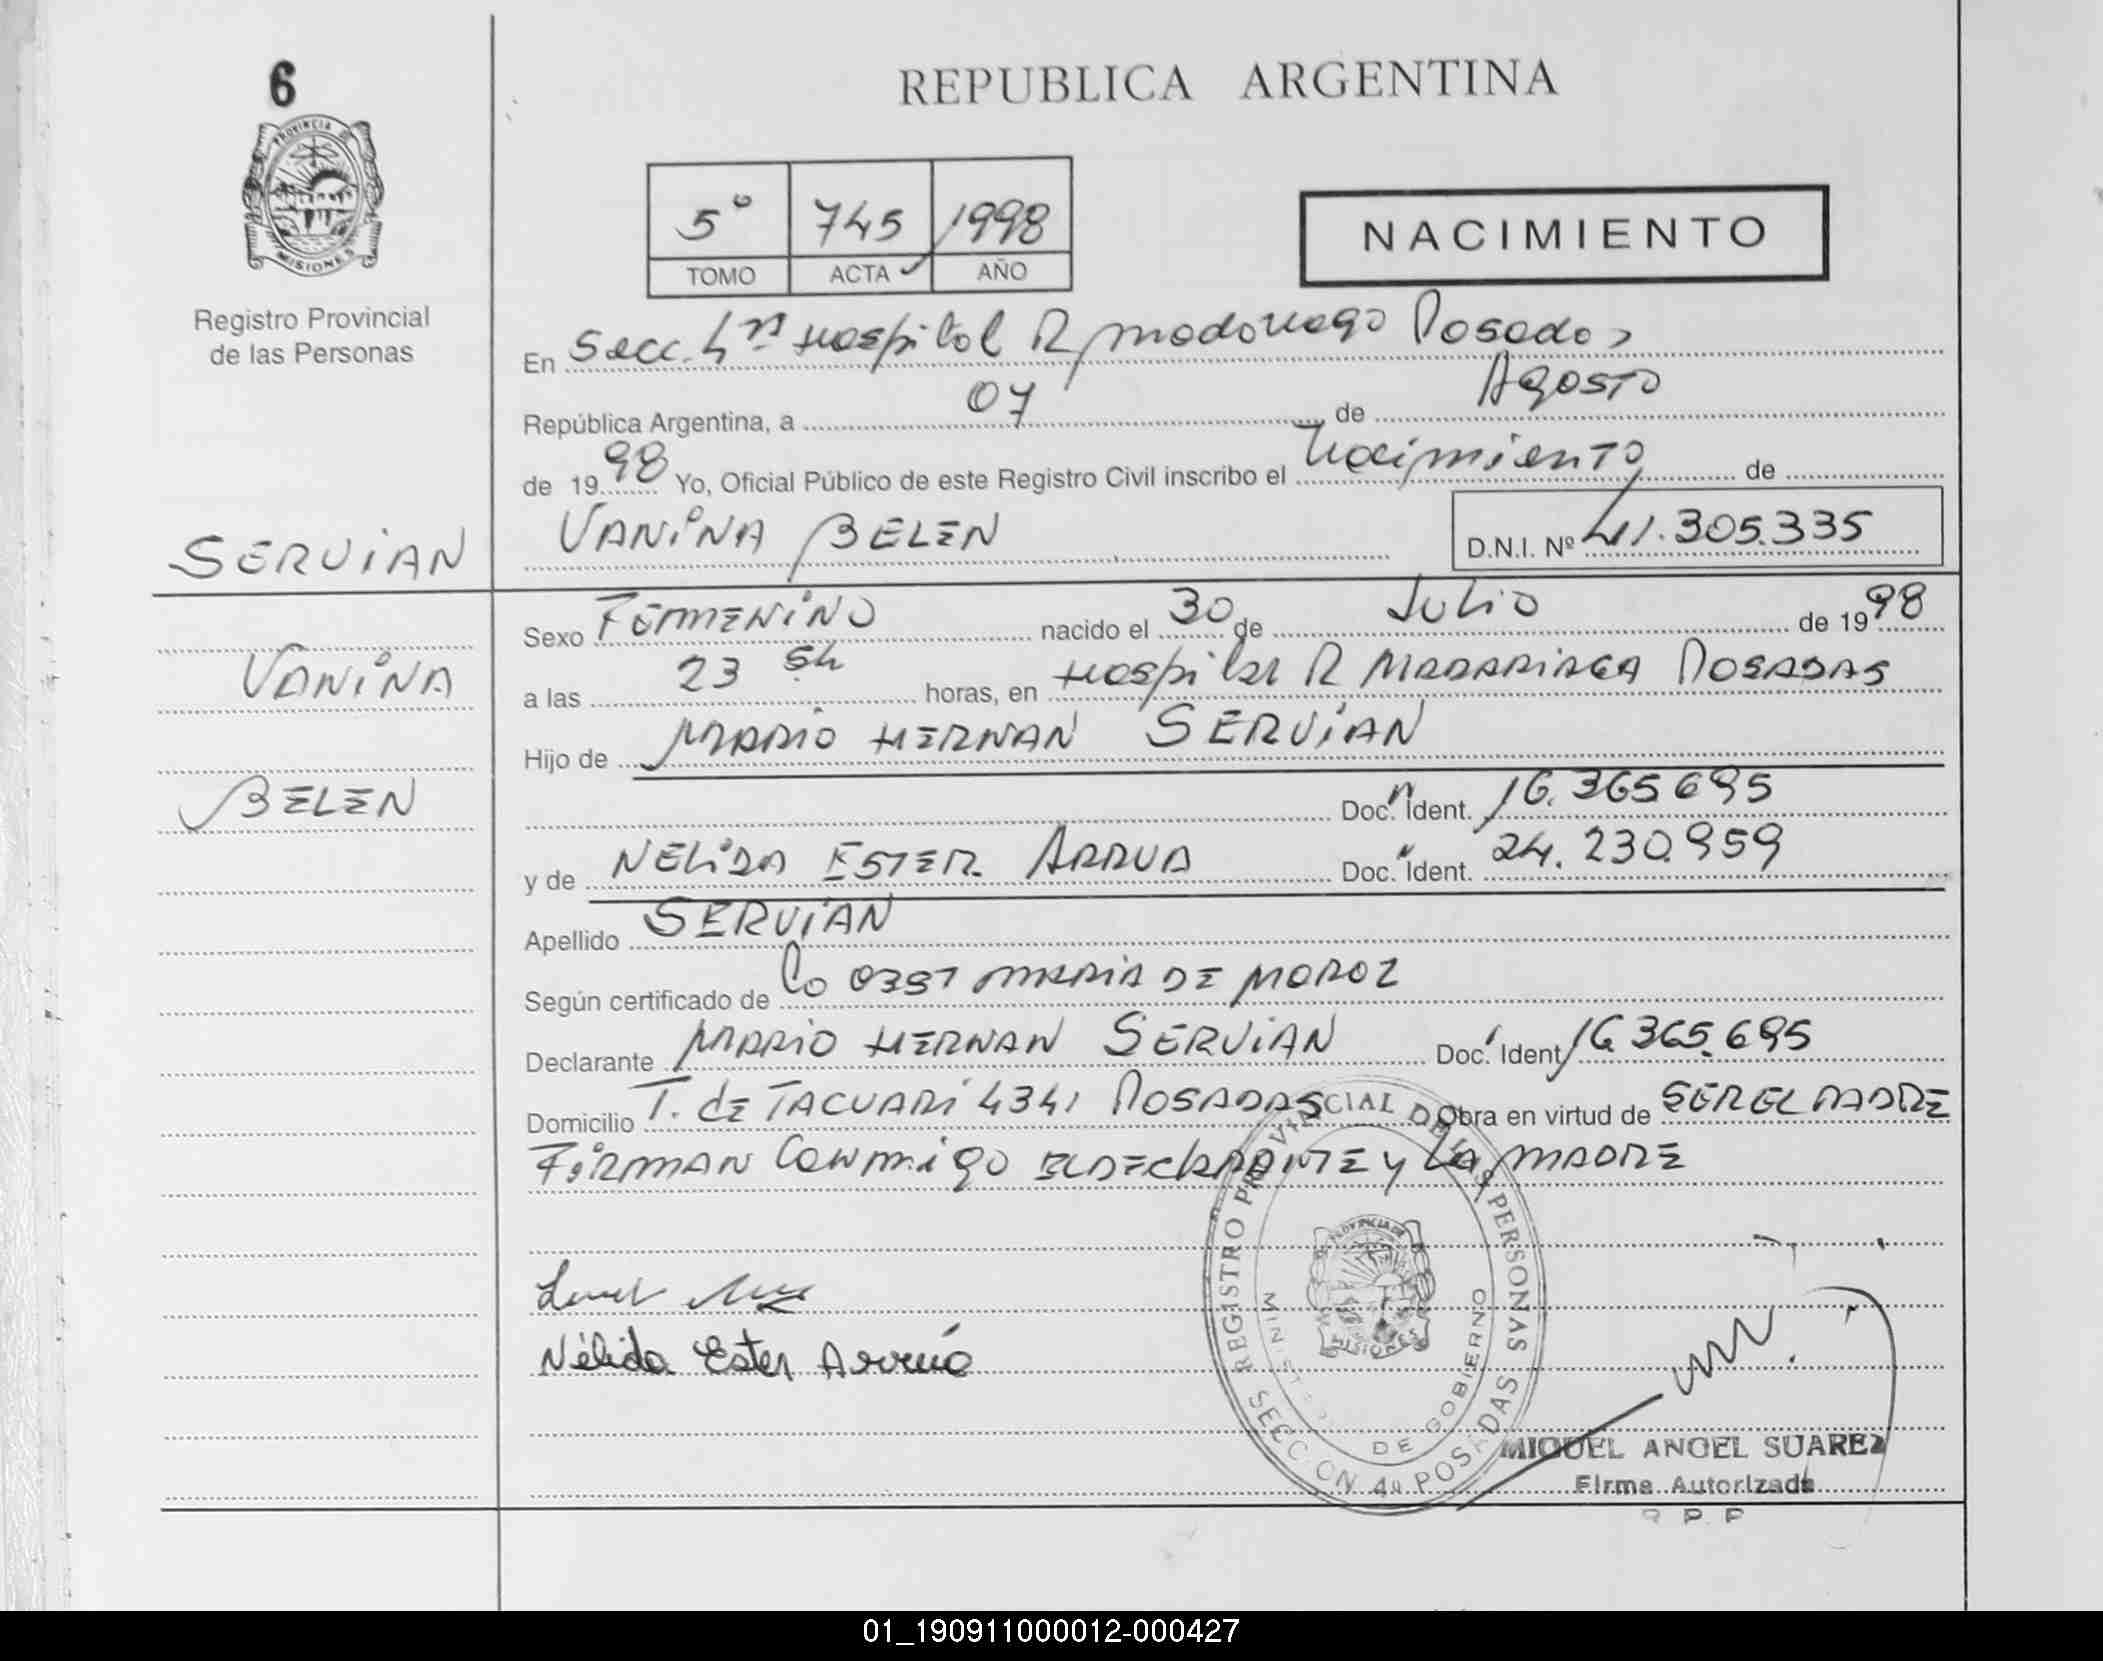 6
REPUBLICA ARGENTINA
PROVINCIA DE
MISIONES
5º 745 1998
TOMO ACTA AÑO
NACIMIENTO
Registro Provincial
de las Personas
En Secc. 4ta Hospital R Madariaga Posadas
República Argentina, a 07 de Agosto
de 1998 Yo, Oficial Público de este Registro Civil inscribo el Nacimiento de
SERVIAN VANINA BELEN D.N.I. Nº 41.305.335
Sexo FEMENINO nacido el 30 de JULIO de 1998
VANINA a las 23 5h horas, en Hospital R MADARIAGA POSADAS
Hijo de MARIO HERNAN SERVIAN
BELEN Doc. Ident. 16.365.695
y de NELIDA ESTER ARRUA Doc. Ident. 24.230.959
Apellido SERVIAN
Según certificado de Co OBST MARIA DE MOROZ
Declarante MARIO HERNAN SERVIAN Doc. Ident. 16.365.695
Domicilio T. de TACUARI 4341 POSADAS Obra en virtud de SER EL PADRE
FIRMAN Conmigo EL DECLARANTE y LA MADRE
Nélida Ester Arrúa
REGISTRO PROVINCIAL DE LAS PERSONAS
MINISTERIO DE GOBIERNO
PROVINCIA DE
MISIONES
SECCION 4a POSADAS
MIGUEL ANGEL SUAREZ
Firma Autorizada
R P P
01_190911000012-000427